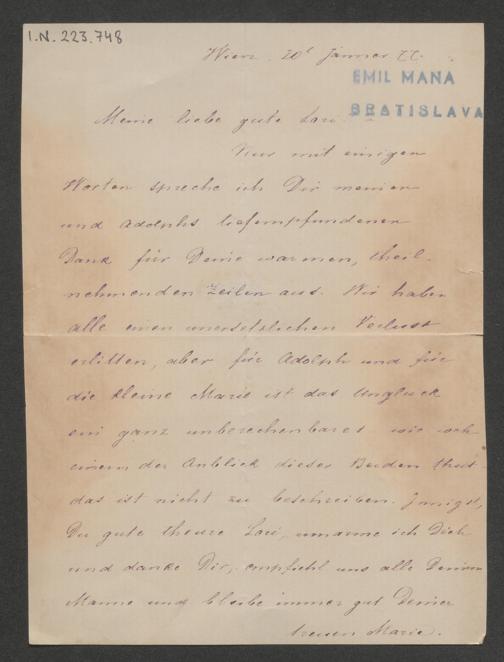 I.N. 223.748
Wien. 20t Jänner 77.
EMIL MANA
BRATISLAVA
Meine liebe gute Lori
Nur mit einigen
Worten spreche ich Dir meinen
und Adolphs tiefempfundenen
Dank für Deine warmen, theil-
nehmenden Zeilen aus. Wir haben
alle einen unersetzlichen Verlust
erlitten, aber für Adolph und für
die kleine Marie ist das Unglück
ein ganz unberechenbares wie weh
einem der Anblick dieser Beiden thut
das ist nicht zu beschreiben. Innigst,
Du gute theure Lori, umarme ich Dich
und danke Dir, empfiehl uns alle Deinem
Manne und bleibe immer gut Deiner
treuen Marie.